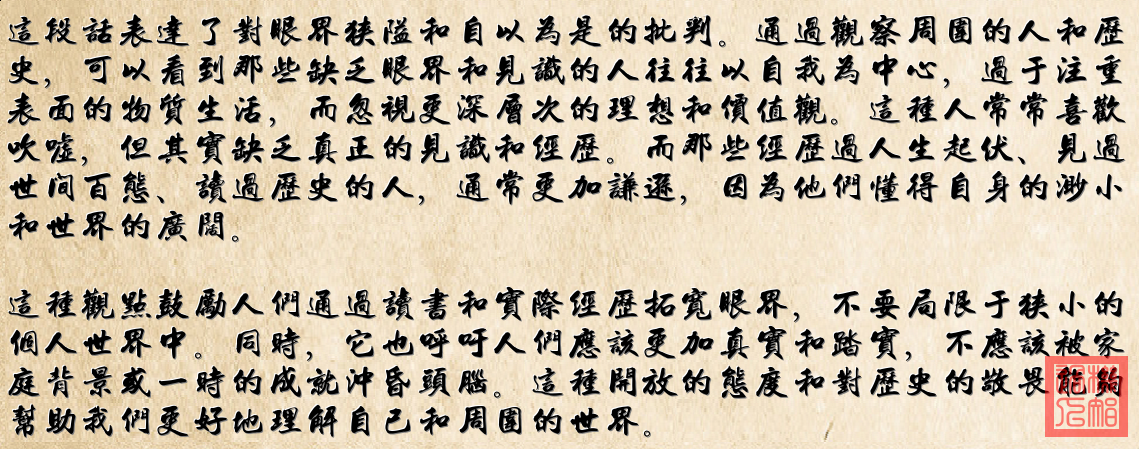 這段話表達了對眼界狹隘和自以為是的批判。通過觀察周圍的人和歷
史，可以看到那些缺乏眼界和見識的人往往以自我為中心，過于注重
表面的物質生活，而忽視更深層次的理想和價值觀。這種人常常喜歡
吹噓，但其實缺乏真正的見識和經歷。而那些經歷過人生起伏、見過
世间百態、讀過歷史的人，通常更加謙遜，因為他們懂得自身的渺小
和世界的廣闊。
這種觀點鼓勵人們通過讀書和實際經歷拓寬眼界，不要局限于狹小的
個人世界中。同時，它也呼吁人們應該更加真實和踏實，不應該被家
庭背景或一時的成就沖昏頭腦。這種開放的態度和對歷史的敬畏能夠
幫助我們更好地理解自己和周圍的世界。